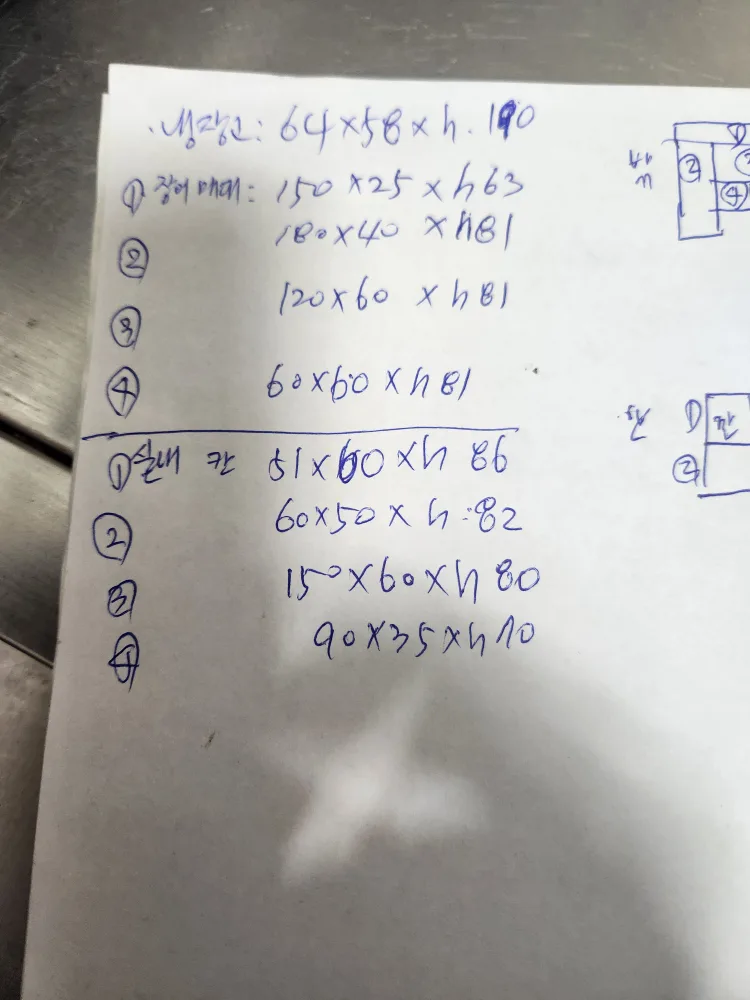 ·냉장고: 64×58×h.190
① 장어 매대: 150×25×h63
② 180×40×h81
③ 120×60×h81
④ 60×60×h81
① 실내 칸 51×60×h 86
② 60×50×h:82
③ 150×60×h 80
④ 90×35×h 10
①
②
④
①
②